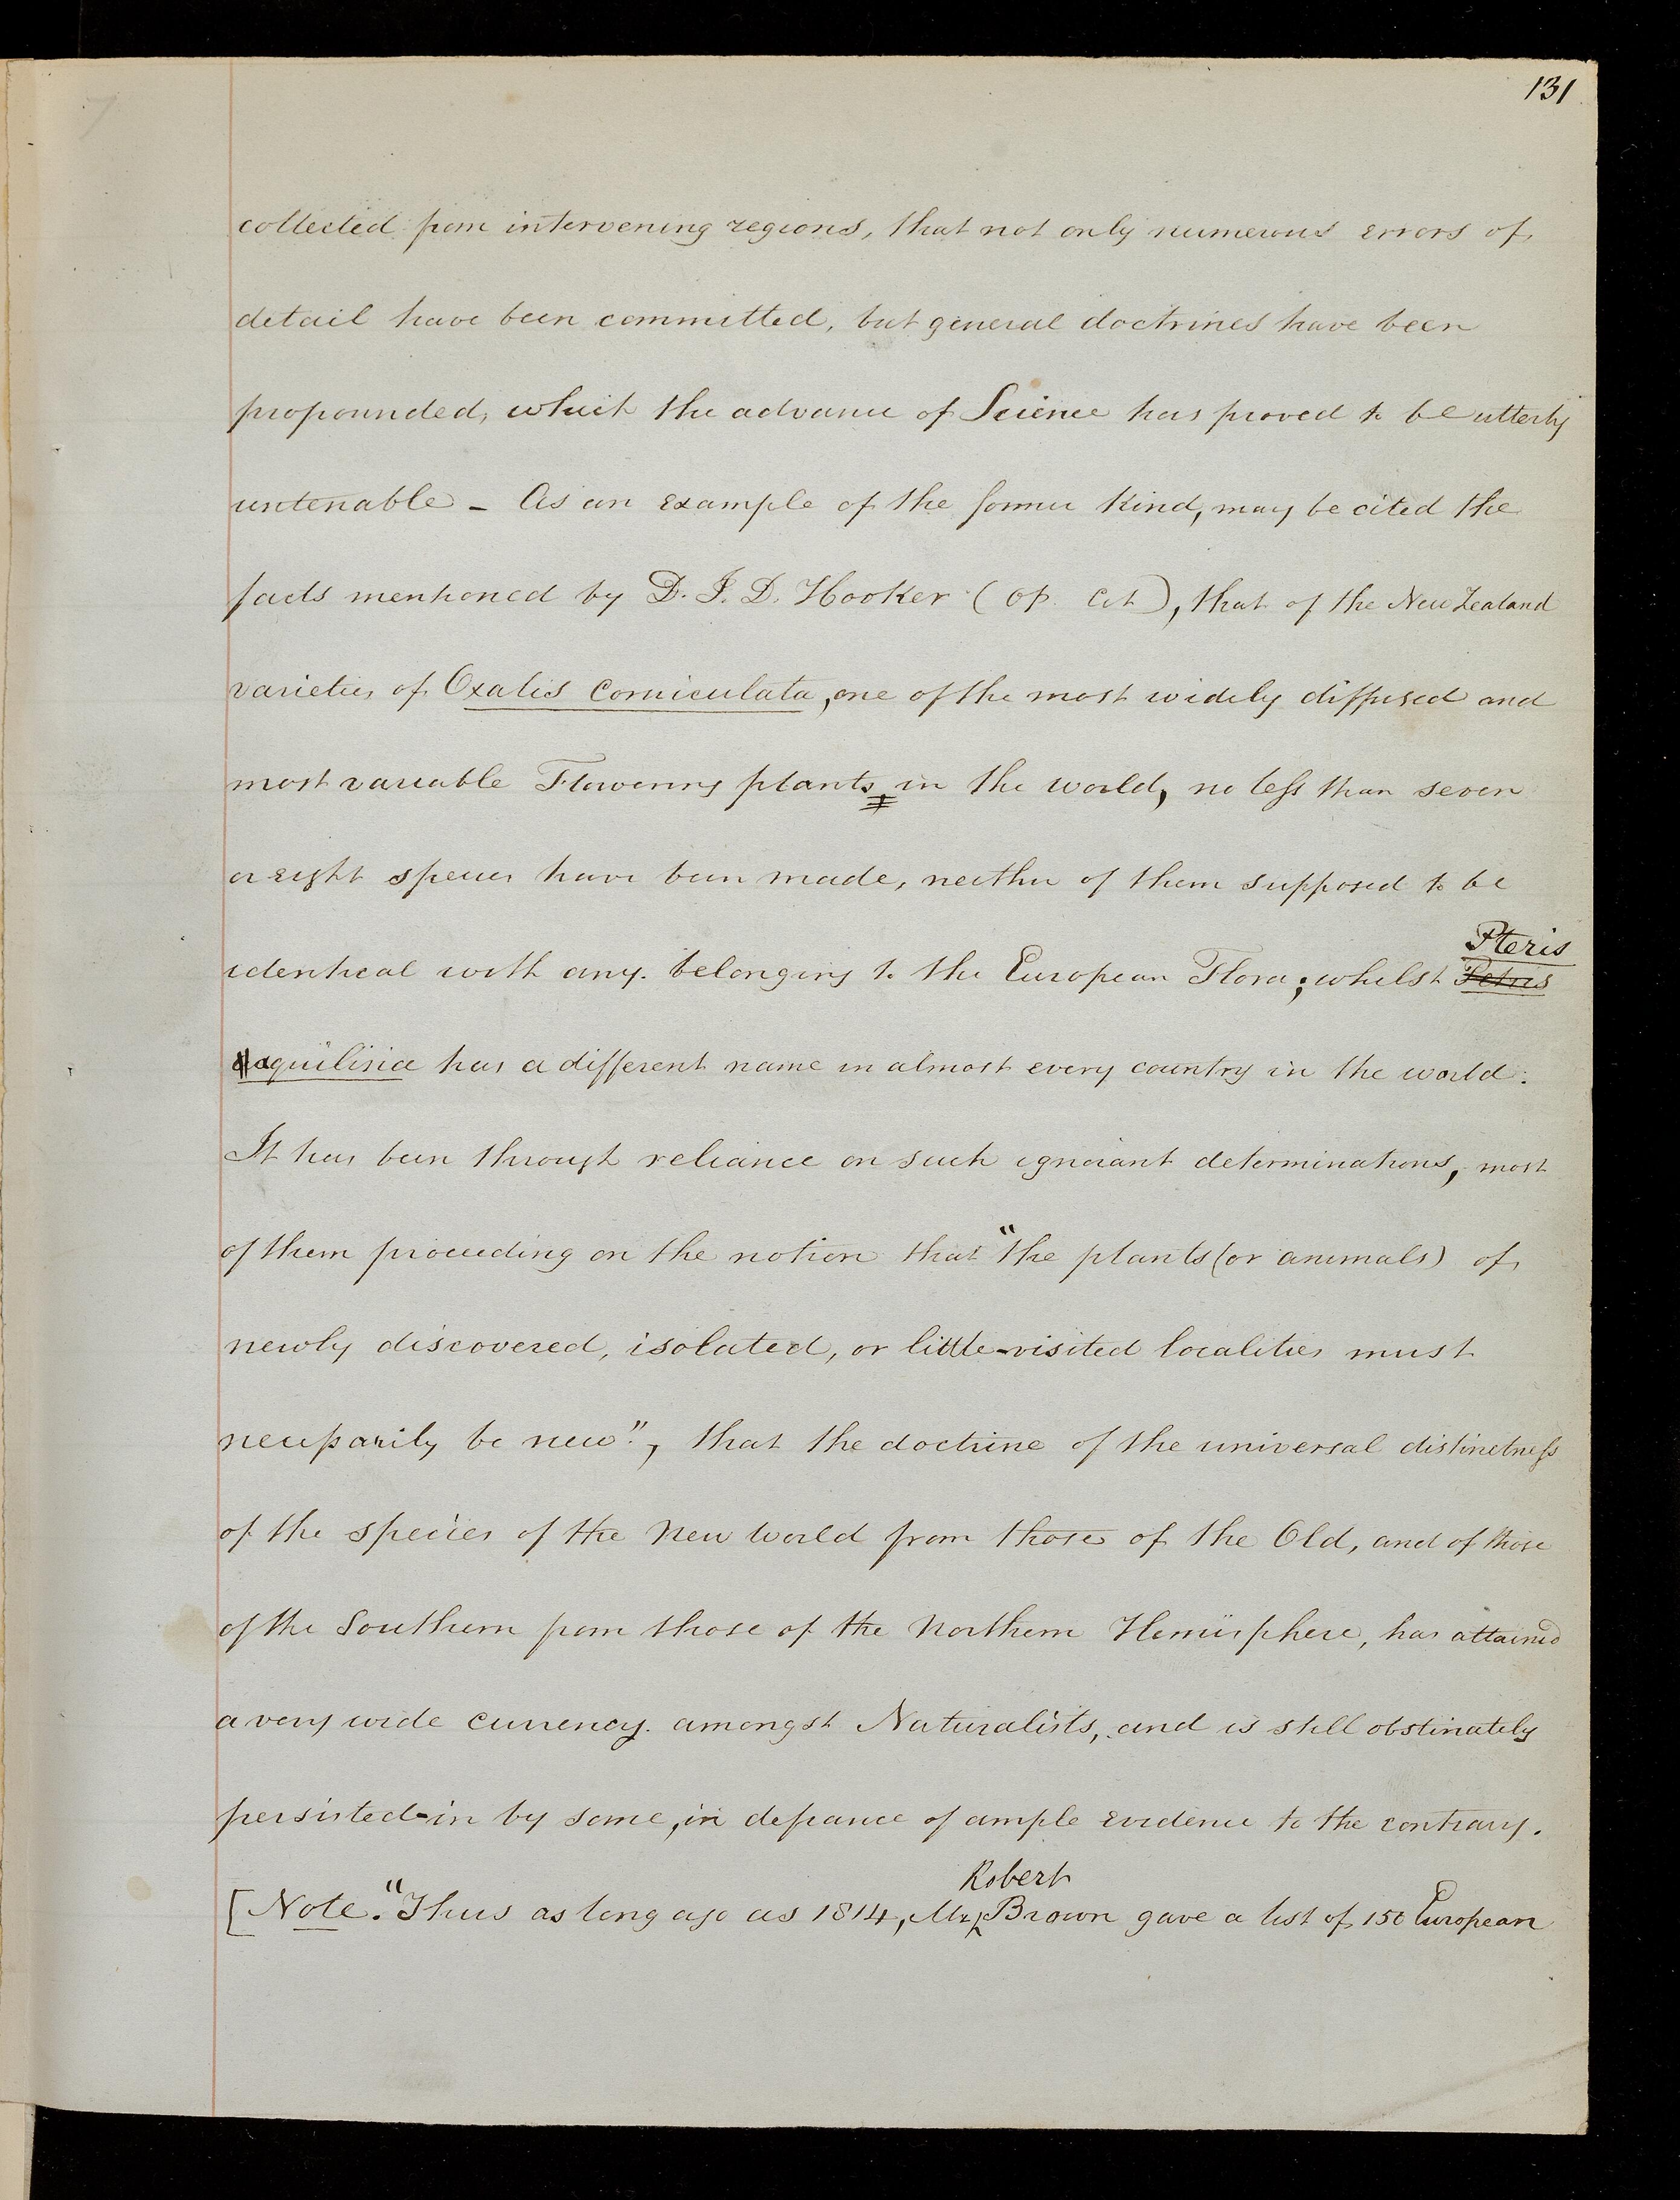 131
collected from intervening regions, that not only numerous errors of
detail have been committed, but general doctrines have been
propounded, which the advance of Science has proved to be utterly
untenable - As an example of the former kind, may be cited the
facts mentioned by D. J. D. Hooker (op. cit), that of the New Zealand
varieties of Oxalis corniculata, one of the most widely diffused and
most variable Flowering plants in the world, no less than seven
or eight species have been made, neither of them supposed to be
Pteris
identical with any belonging to the European Flora; whilst Petris
aquilina has a different name in almost every country in the world.
It has been through reliance on such ignorant determinations, most
of them proceeding on the notion that "the plants (or animals) of
newly discovered, isolated, or little-visited localities must
necessarily be new", that the doctrine of the universal distinctness
of the species of the New World from those of the Old, and of those
of the Southern from those of the Northern Hemisphere, has attained
a very wide currency amongst Naturalists, and is still obstinately
persisted-in by some, in defiance of ample evidence to the contrary.
Robert
[Note. "Thus as long ago as 1814, Mr Brown gave a list of 150 European